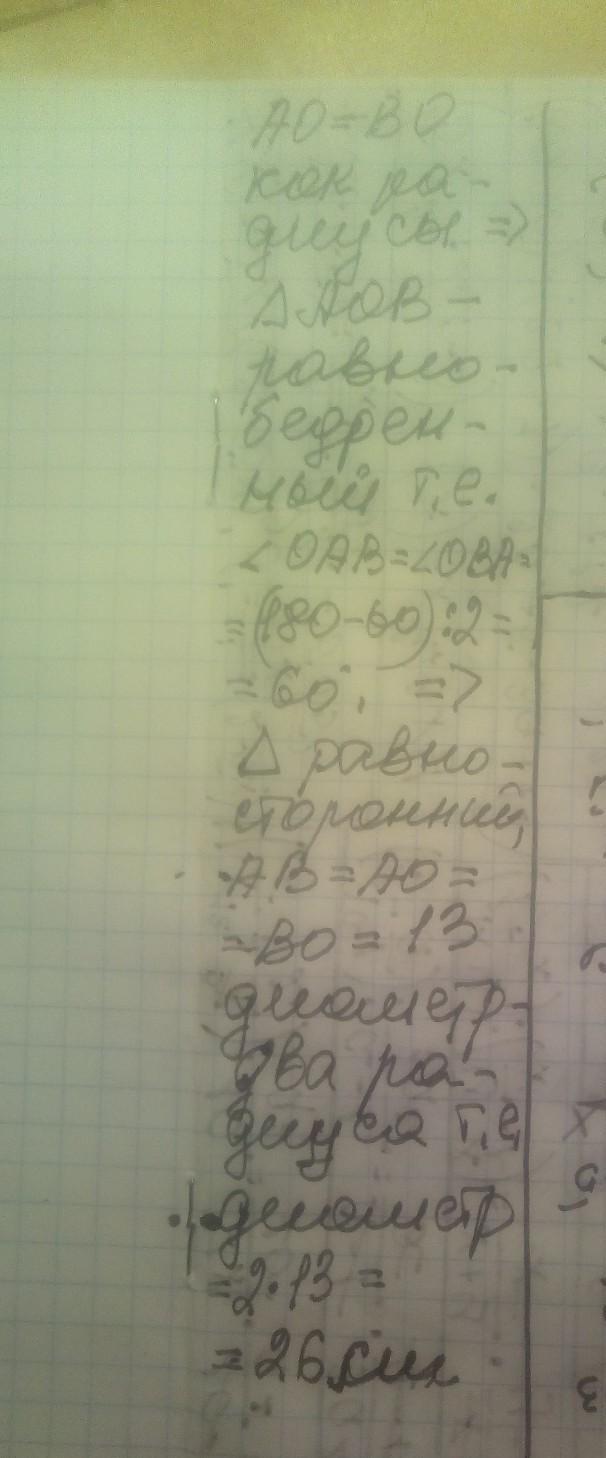 AO=BO
как ра-
диусы =>
△AOB -
равно-
бедрен-
ный т.е.
∠OAB=∠OBA=
=(180-60):2=
=60°. =>
△ равно-
сторонний,
AB=AO=
=BO=13
диаметр-
два ра-
диуса т.е.
диаметр
=2·13=
=26см